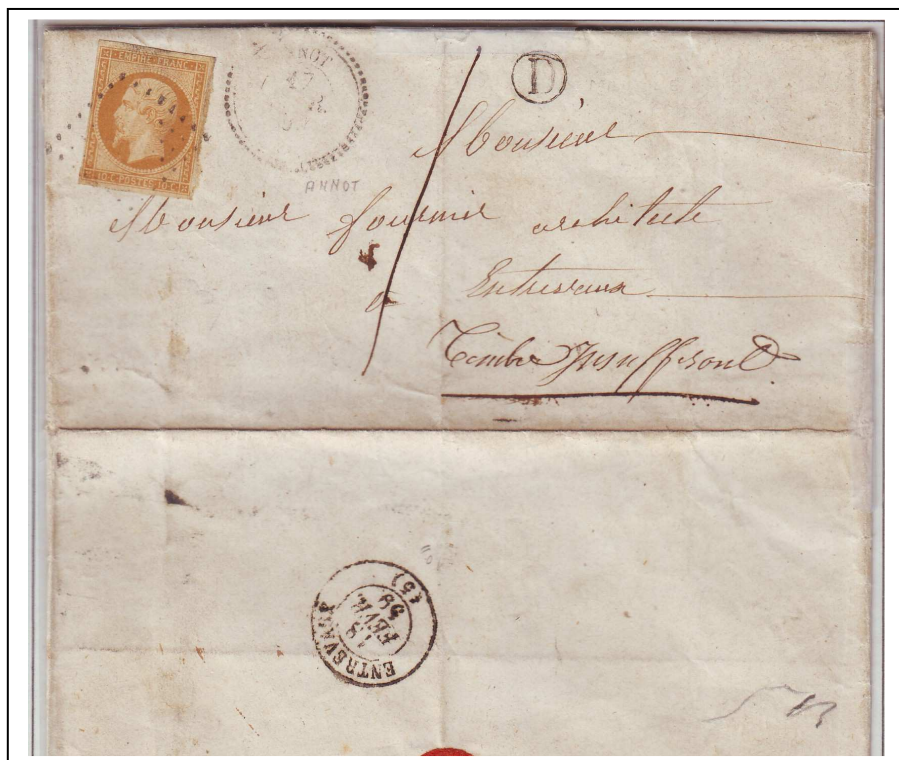 EMPIRE FRANC
10·C·POSTES·10·C
D
ANNOT
Monsieur
Monsieur Fournier architecte
a Entrevaux
Timbre Insuffisant
ENTREVAUX
18
FEVR
59
(5)